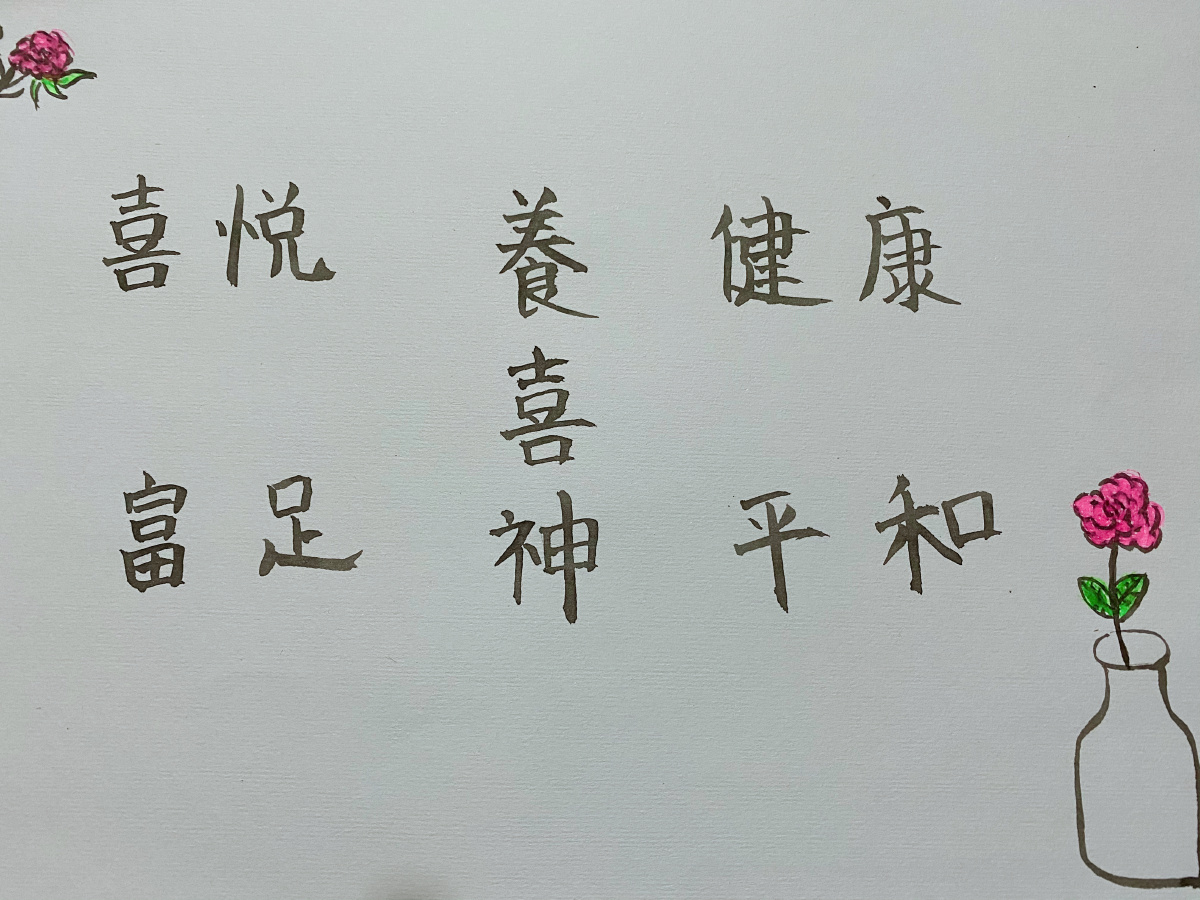 喜悦
富足
養喜神
健康
平和